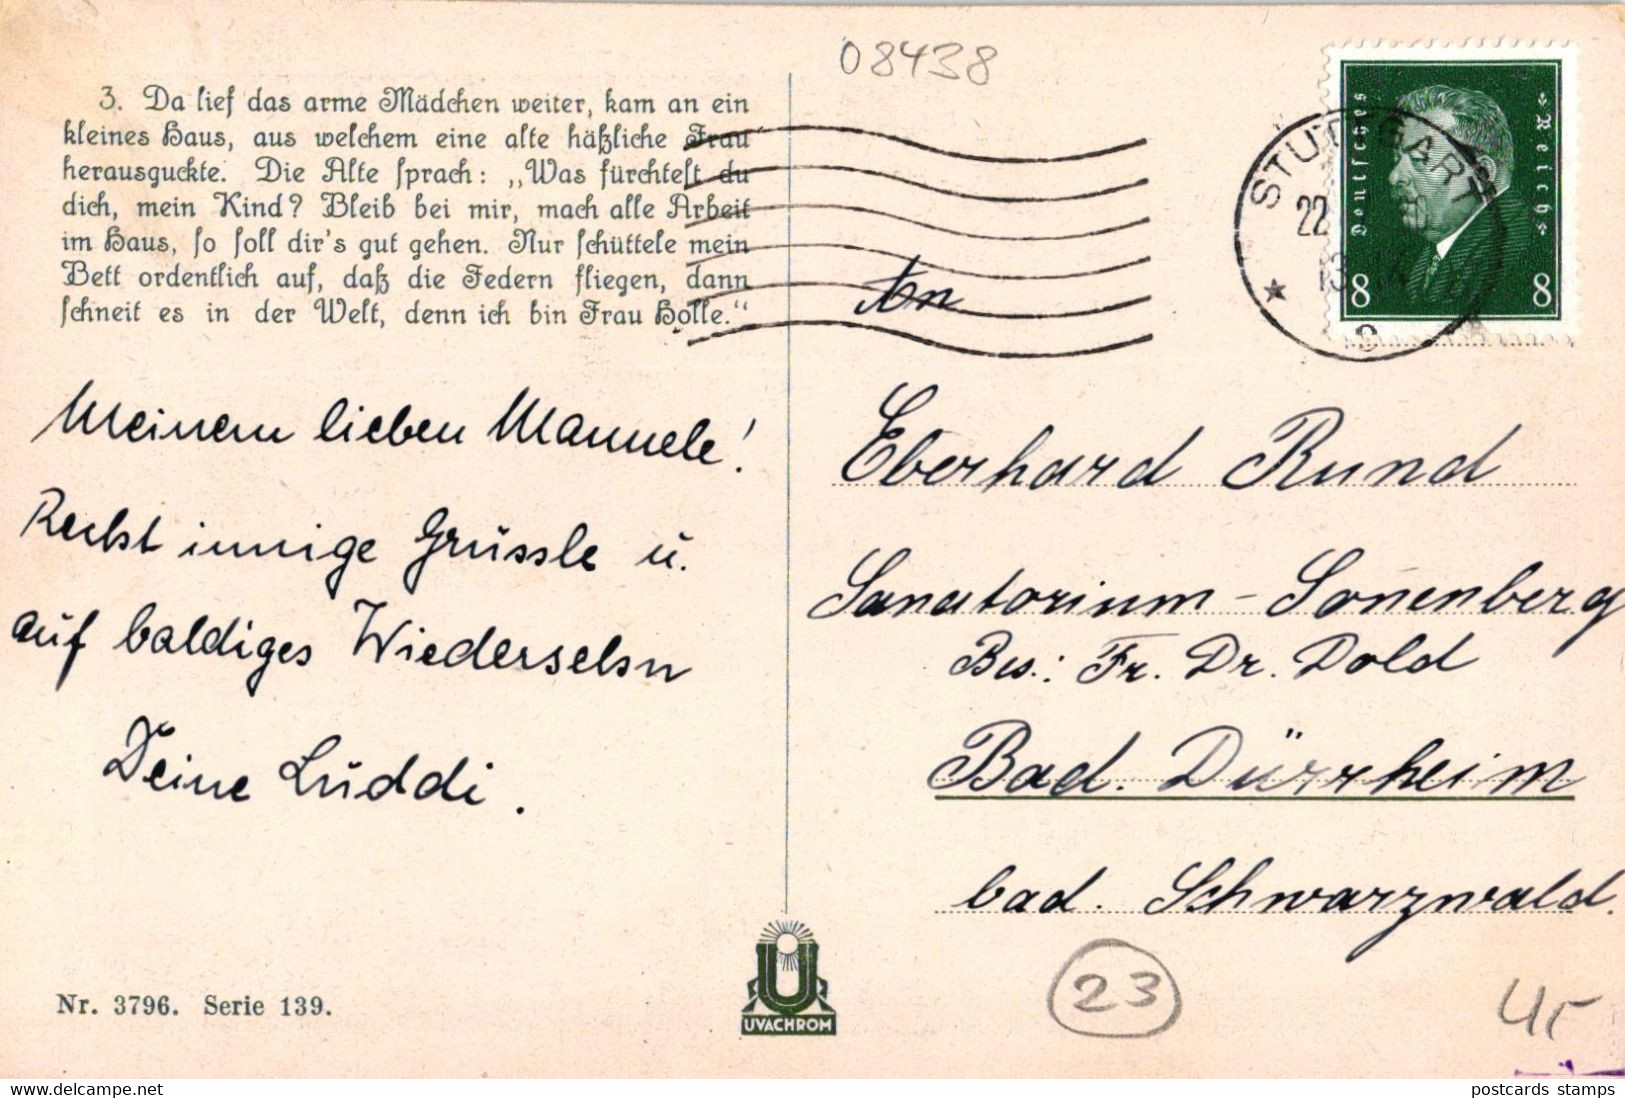 08438
3. Da lief das arme Mädchen weiter, kam an ein
kleines Haus, aus welchem eine alte häßliche Frau
herausguckte. Die Alte sprach: „Was fürchtest du
dich, mein Kind? Bleib bei mir, mach alle Arbeit
im Haus, so soll dir's gut gehen. Nur schüttele mein
Bett ordentlich auf, daß die Federn fliegen, dann
schneit es in der Welt, denn ich bin Frau Holle.“
Meinem lieben Mannele!
Recht innige Grüssle u.
auf baldiges Wiedersehn
Deine Luddi.
Nr. 3796. Serie 139.
U
UVACHROM
STUTTGART
22
Deutsches
Reich
8 8
An
Eberhard Rund
Sanatorium - Sonenberg
Bes.: Fr. Dr. Dold
Bad. Dürrheim
bad. Schwarzwald.
23
delcampe.net
postcards stamps